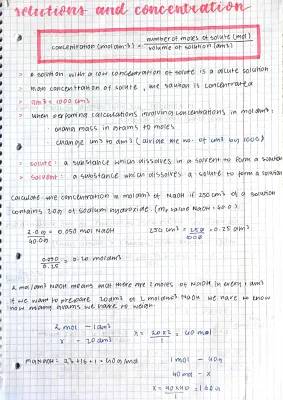 solutions and concentration
concentration (mol dm⁻³) = number of moles of solute (mol)
volume of solution (dm³)
> a solution with a low concentration of solute is a dilute solution
> high concentration of solute, the solution is concentrated
> dm³ = 1000 cm³
> when performing calculations involving concentrations in moldm⁻³:
change mass in grams to moles
change cm³ to dm³ (divide the no. of cm³ by 1000)
> solute: a substance which dissolves in a solvent to form a solution
> solvent: a substance which dissolves a solute to form a solution
calculate the concentration in moldm⁻³ of NaOH if 250 cm³ of a solution
contains 2.0g of sodium hydroxide. (Mr value NaOH = 40.0)
2.0g = 0.050 mol NaOH 250 cm³ = 250 = 0.25 dm³
40.0g 1000
0.050 = 0.20 moldm⁻³
0.25
2 mol/dm³ NaOH means that there are 2 moles of NaOH in every 1 dm³
if we want to prepare 20dm³ of 2 moldm⁻³ NaOH we have to know
how many grams we have to weigh:
2 mol - 1dm³
x - 20 dm³
x = 20x2 = 40 mol
1
NaOH = 23+16+1 = 40g/mol
1 mol - 40g
40 mol - x
x = 40x40 = 1600g
1